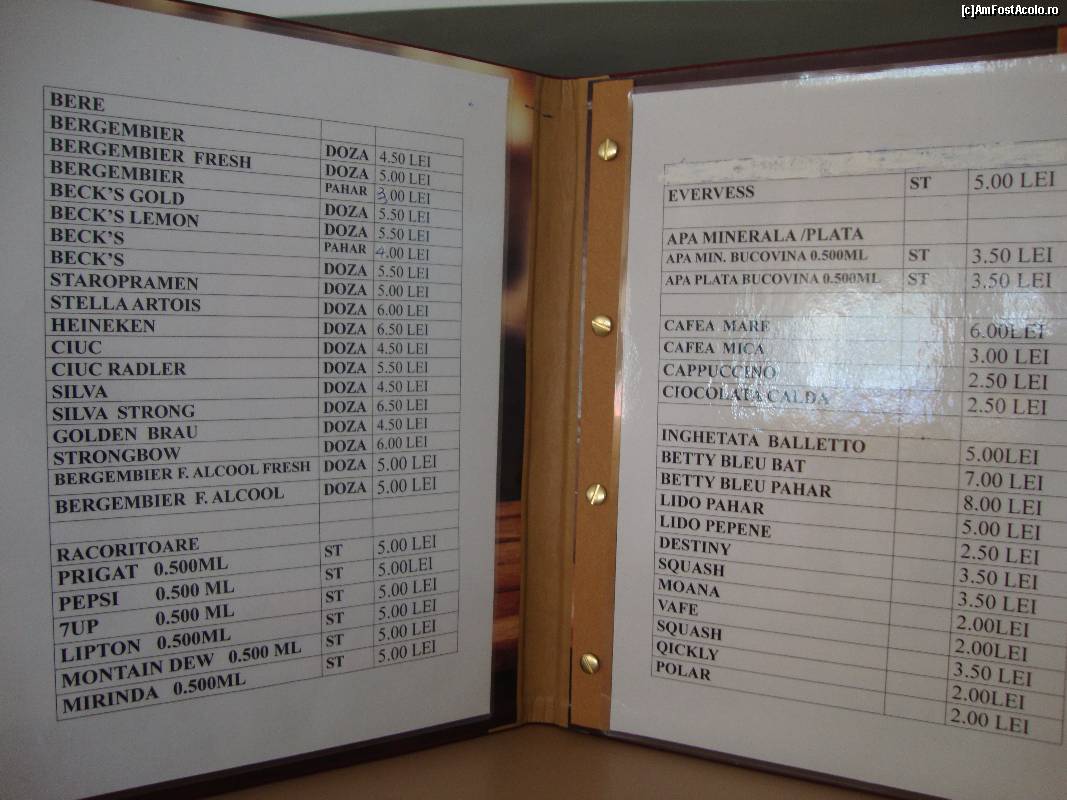 [c]AmFostAcolo.ro
BERE
BERGEMBIER DOZA 4.50 LEI
BERGEMBIER FRESH DOZA 5.00 LEI
BERGEMBIER PAHAR 3.00 LEI
BECK'S GOLD DOZA 5.50 LEI
BECK'S LEMON DOZA 5.50 LEI
BECK'S PAHAR 4.00 LEI
BECK'S DOZA 5.50 LEI
STAROPRAMEN DOZA 5.00 LEI
STELLA ARTOIS DOZA 6.00 LEI
HEINEKEN DOZA 6.50 LEI
CIUC DOZA 4.50 LEI
CIUC RADLER DOZA 5.50 LEI
SILVA DOZA 4.50 LEI
SILVA STRONG DOZA 6.50 LEI
GOLDEN BRAU DOZA 4.50 LEI
STRONGBOW DOZA 6.00 LEI
BERGEMBIER F. ALCOOL FRESH DOZA 5.00 LEI
BERGEMBIER F. ALCOOL DOZA 5.00 LEI
RACORITOARE
PRIGAT 0.500ML ST 5.00 LEI
PEPSI 0.500 ML ST 5.00LEI
7UP 0.500 ML ST 5.00 LEI
LIPTON 0.500ML ST 5.00 LEI
MONTAIN DEW 0.500 ML ST 5.00 LEI
MIRINDA 0.500ML ST 5.00 LEI
EVERVESS ST 5.00 LEI
APA MINERALA /PLATA
APA MIN. BUCOVINA 0.500ML ST 3.50 LEI
APA PLATA BUCOVINA 0.500ML ST 3.50 LEI
CAFEA MARE 6.00LEI
CAFEA MICA 3.00 LEI
CAPPUCCINO 2.50 LEI
CIOCOLATA CALDA 2.50 LEI
INGHETATA BALLETTO 5.00LEI
BETTY BLEU BAT 7.00 LEI
BETTY BLEU PAHAR 8.00 LEI
LIDO PAHAR 5.00 LEI
LIDO PEPENE 2.50 LEI
DESTINY 3.50 LEI
SQUASH 3.50 LEI
MOANA 2.00LEI
VAFE 2.00LEI
SQUASH 3.50 LEI
QICKLY 2.00LEI
POLAR 2.00 LEI